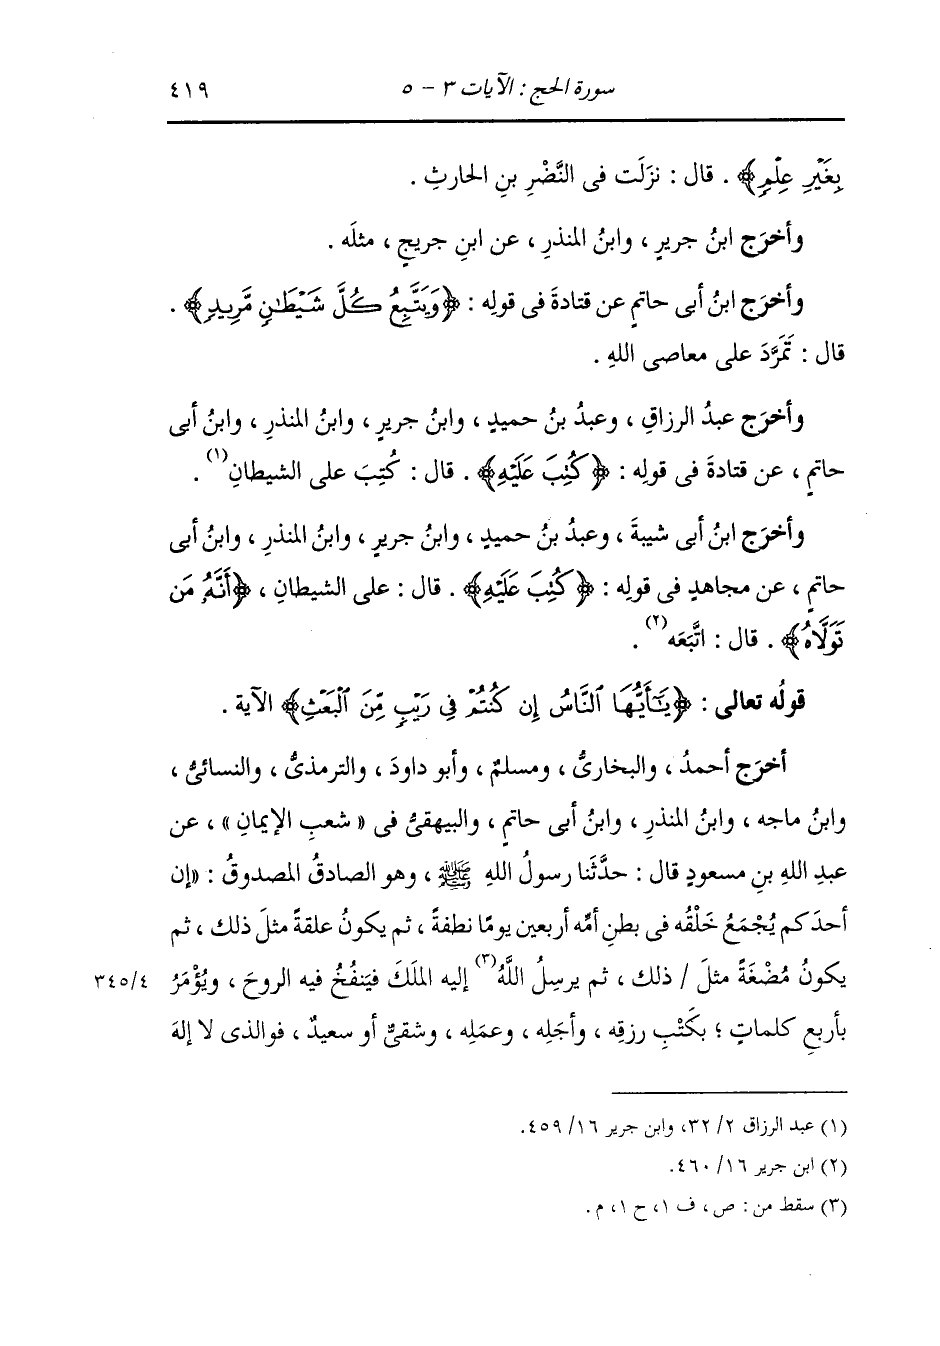 سورة الحج : الآيات ٣ - ٥ ٤١٩
بِغَيْرِ عِلْمٍ﴾ . قال : نزَلَت فى النَّضْرِ بنِ الحارثِ .
وأخرَج ابنُ جريرٍ ، وابنُ المنذرِ ، عن ابنِ جريجٍ ، مثلَه .
وأخرَج ابنُ أبى حاتمٍ عن قتادةَ فى قولِه : ﴿وَيَتَّبِعُ كُلَّ شَيْطَٰنٍ مَّرِيدٍ﴾ .
قال : تَمَرَّدَ على معاصى اللهِ .
وأخرَج عبدُ الرزاقِ ، وعبدُ بنُ حميدٍ ، وابنُ جريرٍ ، وابنُ المنذرِ ، وابنُ أبى
حاتمٍ ، عن قتادةَ فى قولِه : ﴿كُتِبَ عَلَيْهِ﴾ . قال : كُتِبَ على الشيطانِ(١) .
وأخرَج ابنُ أبى شيبةَ ، وعبدُ بنُ حميدٍ ، وابنُ جريرٍ ، وابنُ المنذرِ ، وابنُ أبى
حاتمٍ ، عن مجاهدٍ فى قولِه : ﴿كُتِبَ عَلَيْهِ﴾ . قال : على الشيطانِ ، ﴿أَنَّهُۥ مَن
تَوَلَّاهُ﴾ . قال : اتَّبَعَه(٢) .
قولُه تعالى : ﴿يَٰٓأَيُّهَا ٱلنَّاسُ إِن كُنتُمْ فِى رَيْبٍ مِّنَ ٱلْبَعْثِ﴾ الآية .
أخرَج أحمدُ ، والبخارىُّ ، ومسلمٌ ، وأبو داودَ ، والترمذىُّ ، والنسائىُّ ،
وابنُ ماجه ، وابنُ المنذرِ ، وابنُ أبى حاتمٍ ، والبيهقىُّ فى « شعبِ الإيمانِ » ، عن
عبدِ اللهِ بنِ مسعودٍ قال : حدَّثَنا رسولُ اللهِ ﷺ ، وهو الصادقُ المصدوقُ : «إن
أحدَكم يُجْمَعُ خَلْقُه فى بطنِ أمِّه أربعين يومًا نطفةً ، ثم يكونُ علقةً مثلَ ذلك ، ثم
يكونُ مُضْغَةً مثلَ / ذلك ، ثم يرسِلُ اللَّهُ(٣) إليه الملَكَ فيَنفُخُ فيه الروحَ ، ويُؤْمَرُ ٣٤٥/٤
بأربعِ كلماتٍ ؛ بكَتْبِ رزقِه ، وأجَلِه ، وعمَلِه ، وشقىٌّ أو سعيدٌ ، فوالذى لا إلهَ
(١) عبد الرزاق ٢/ ٣٢، وابن جرير ١٦/ ٤٥٩.
(٢) ابن جرير ١٦/ ٤٦٠.
(٣) سقط من : ص ، ف ١، ح ١، م .